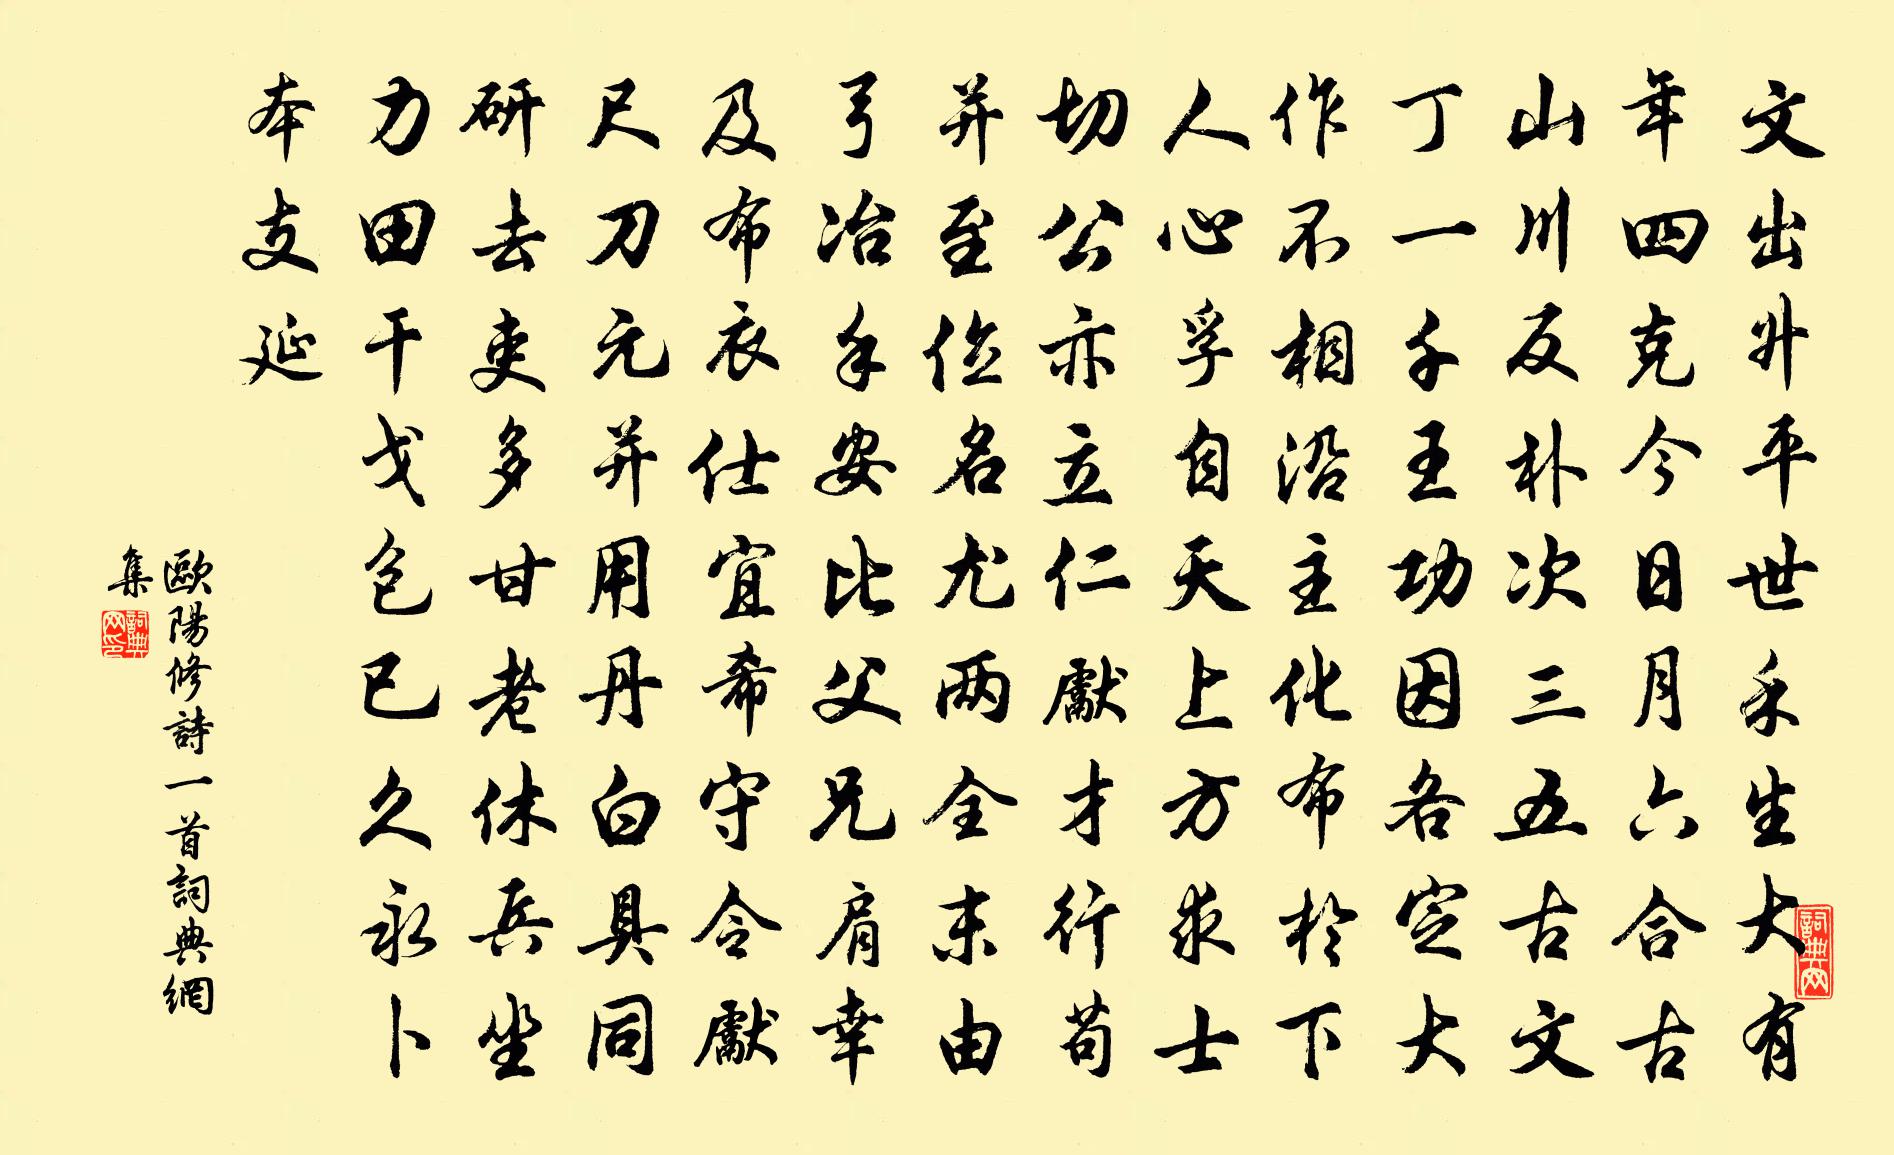 文出升平世禾生大有
年四克今日月六合古
山川反朴次三五古文
丁一千王功因各定大
作不相沿主化布於下
人心孚自天上方求士
切公亦立仁獻才行苟
并至位名尤两全末由
弓冶手安比父兄肩幸
及布衣仕宜希守令獻
尺刀元并用丹白具同
研去吏多甘老休兵坐
力田干戈包已久永卜
本支延
歐陽修詩一首詞典網
集
詞典网
詞典网印